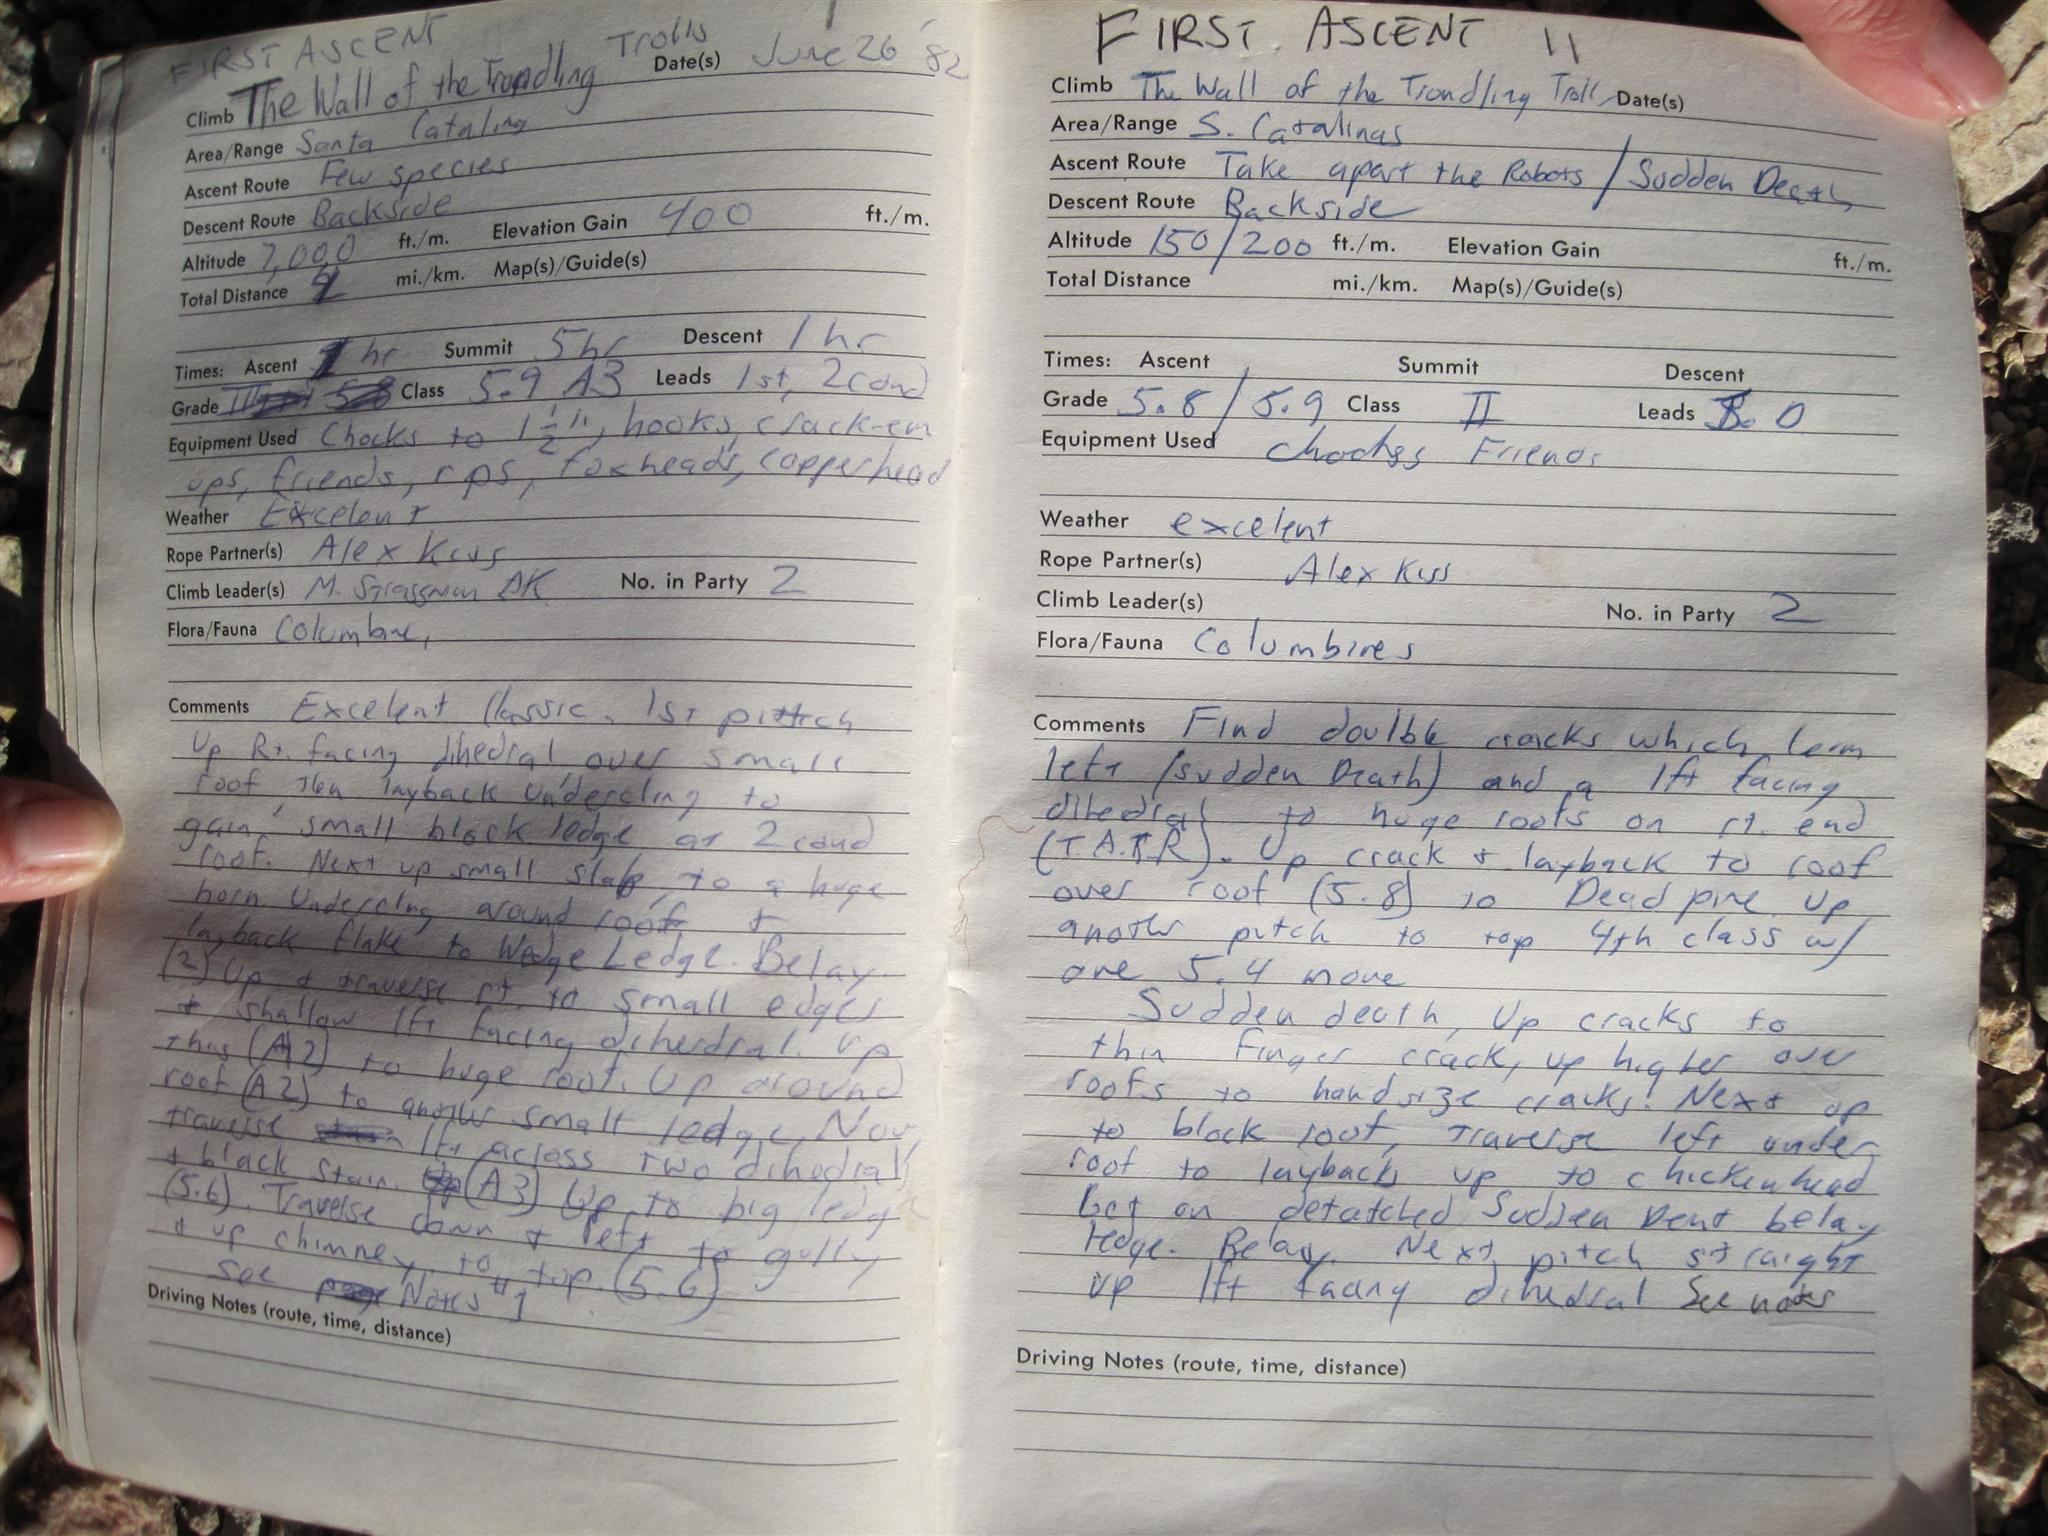 FIRST ASCENT
Climb The Wall of the Trundling Trolls Date(s) June 26 '82
Area/Range Santa Catalina
Ascent Route Few species
Descent Route Backside
Altitude 7,000 ft./m. Elevation Gain 400 ft./m.
Total Distance mi./km. Map(s)/Guide(s)
Times: Ascent 1 hr Summit 5hr Descent 1 hr
Grade III Class 5.9 A3 Leads 1st, 2cond
Equipment Used Chocks to 1 1/2", hooks, crack-em
ups, friends, rps, copperhead
Weather Excelent
Rope Partner(s) Alex Kiss
Climb Leader(s) M. Strassman AK No. in Party 2
Flora/Fauna Columbine,
Comments Excelent Classic. 1st pitch
Up Rt. facing dihedral over small
roof then layback undercling to
gain small block ledge at 2cond
roof. Next up small slab, to a huge
horn. Undercling around roof +
layback flake to Wedge Ledge. Belay.
(2) Up + traverse rt. to small edges
+ shallow lft facing diherdral. Up
this (A2) to huge roof. Up around
roof (A2) to another small ledge, Now
traverse lft across two dihedrals
+ black stain. (A3) Up to big ledge
(5.6). Traverse down + left to gully
+ up chimney to top. (5.6)
see Notes #1
Driving Notes (route, time, distance)
FIRST ASCENT 11
Climb The Wall of the Trondling Troll Date(s)
Area/Range S. Catalinas
Ascent Route Take apart the Robots / Sudden Death
Descent Route Backside
Altitude 150/200 ft./m. Elevation Gain ft./m.
Total Distance mi./km. Map(s)/Guide(s)
Times: Ascent Summit Descent
Grade 5.8 / 5.9 Class II Leads 0
Equipment Used Friends
Weather excelent
Rope Partner(s) Alex Kiss
Climb Leader(s) No. in Party 2
Flora/Fauna Columbines
Comments Find double cracks which
left (sudden Death) and a lft facing
dihedral to huge roofs on rt. end
(T.A.T.R). Up crack + layback to roof
over roof (5.8) to Dead pine. Up
another pitch to top 4th class w/
one 5.4 move
Sudden death, Up cracks to
thin finger crack, up higher over
roofs to handsize cracks. Next up
to block roof, Traverse left under
roof to layback up to chickenhead
on detatched Sudden Dent belay
ledge. Belay. Next pitch straight
up lft facing dihedral See notes
Driving Notes (route, time, distance)